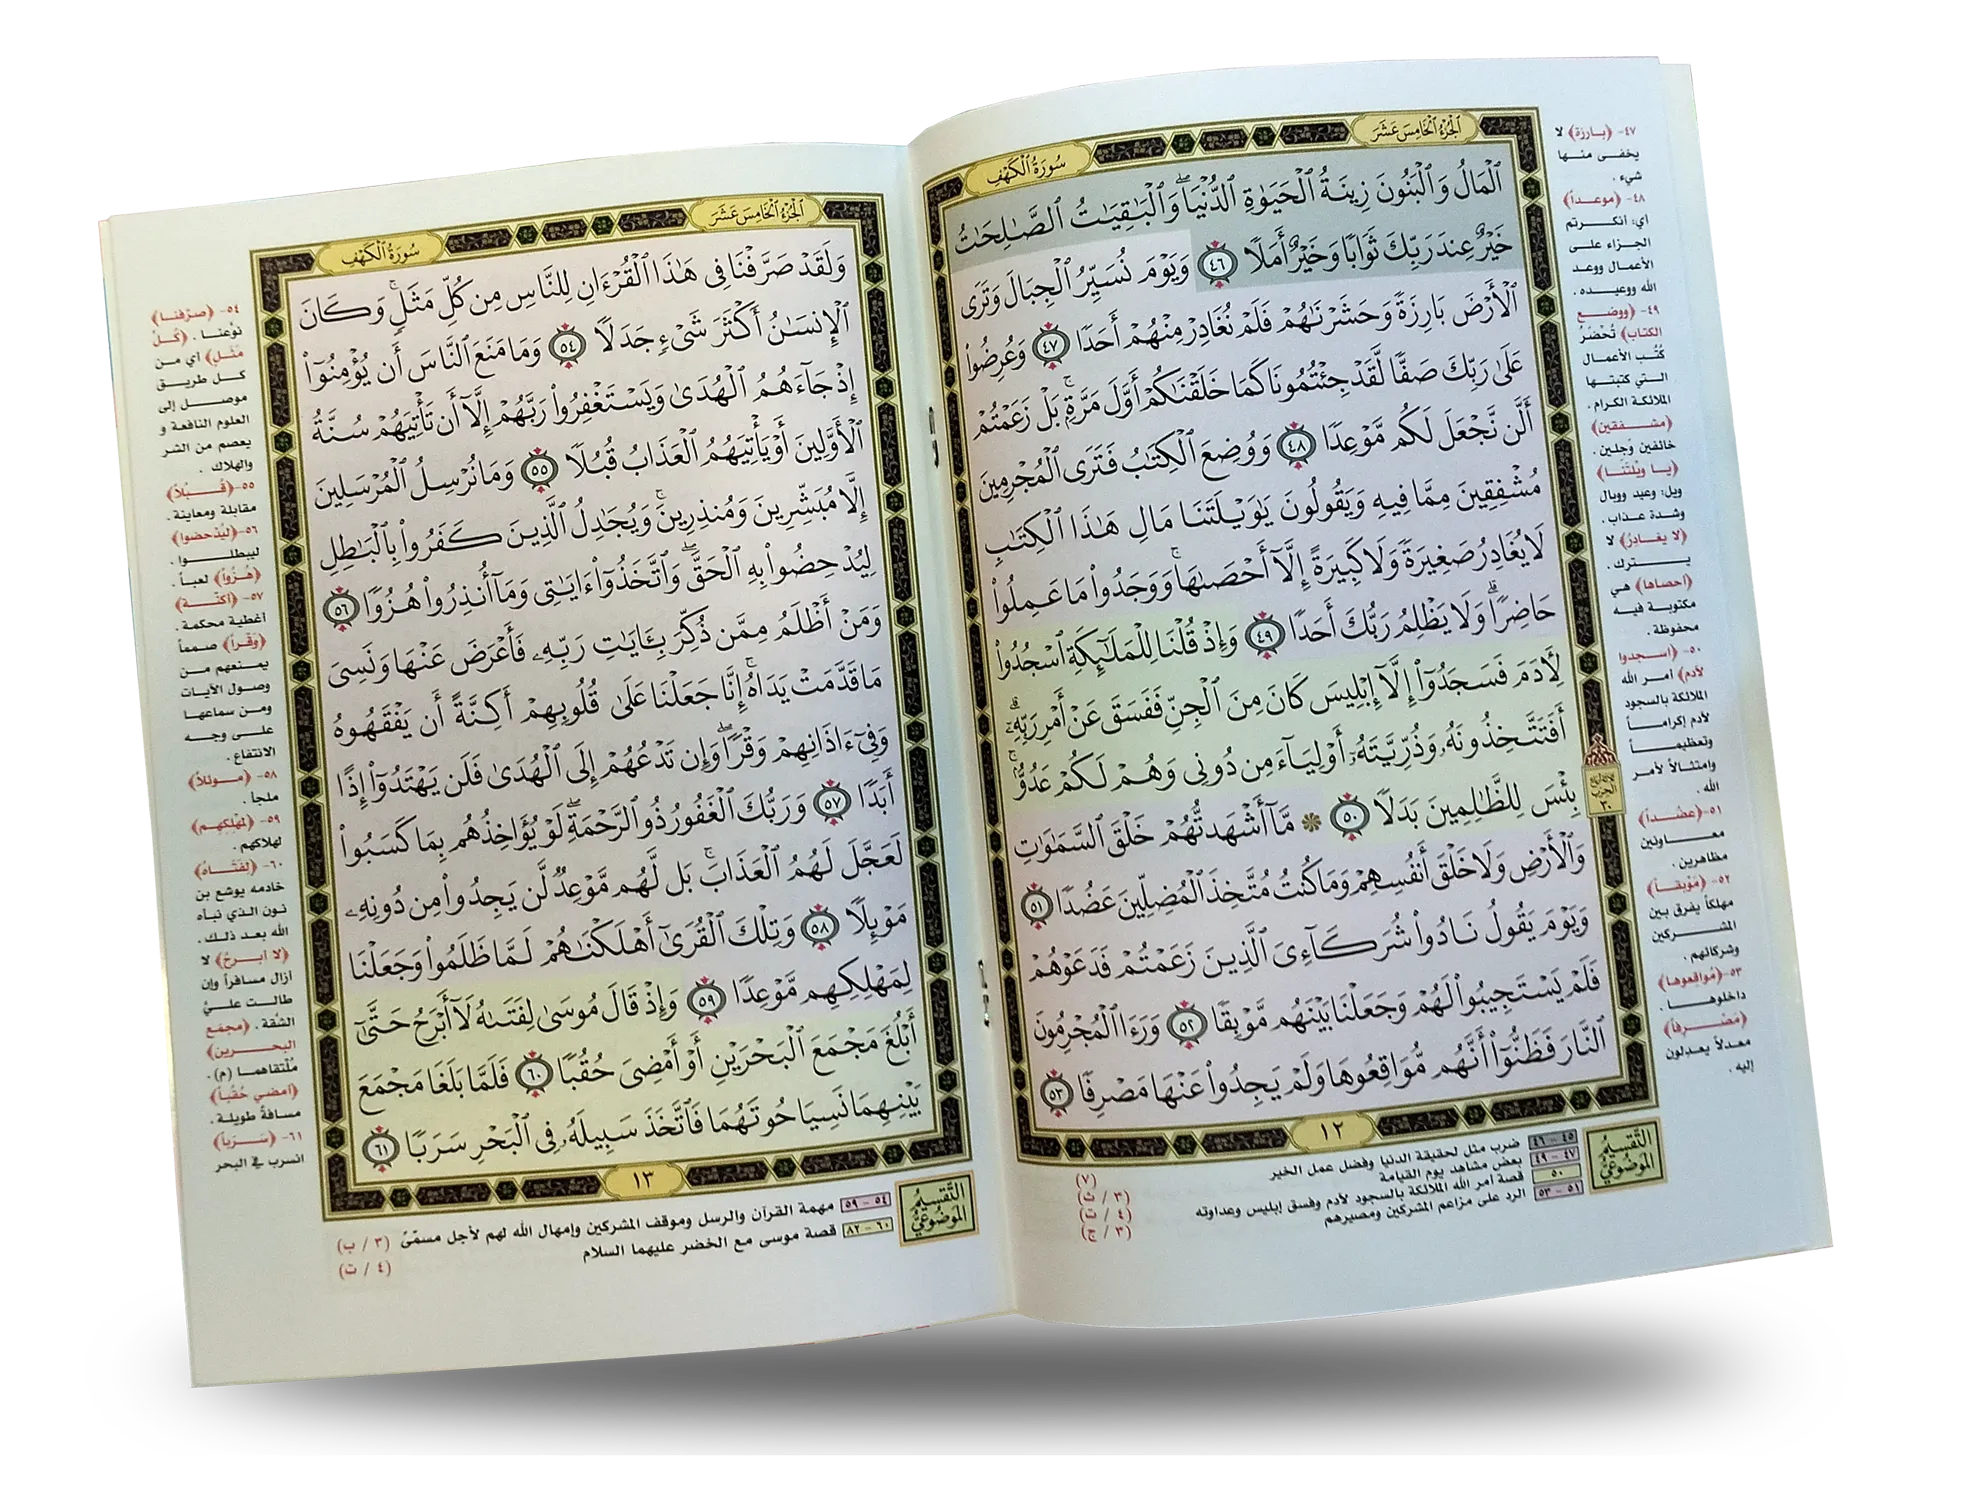 الجزء الخامس عشر
سورة الكهف
ٱلْمَالُ وَٱلْبَنُونَ زِينَةُ ٱلْحَيَوٰةِ ٱلدُّنْيَا ۖ وَٱلْبَٰقِيَٰتُ ٱلصَّٰلِحَٰتُ
خَيْرٌ عِندَ رَبِّكَ ثَوَابًا وَخَيْرٌ أَمَلًا ٤٦ وَيَوْمَ نُسَيِّرُ ٱلْجِبَالَ وَتَرَى
ٱلْأَرْضَ بَارِزَةً وَحَشَرْنَٰهُمْ فَلَمْ نُغَادِرْ مِنْهُمْ أَحَدًا ٤٧ وَعُرِضُوا۟
عَلَىٰ رَبِّكَ صَفًّا لَّقَدْ جِئْتُمُونَا كَمَا خَلَقْنَٰكُمْ أَوَّلَ مَرَّةٍۭ ۚ بَلْ زَعَمْتُمْ
أَلَّن نَّجْعَلَ لَكُم مَّوْعِدًا ٤٨ وَوُضِعَ ٱلْكِتَٰبُ فَتَرَى ٱلْمُجْرِمِينَ
مُشْفِقِينَ مِمَّا فِيهِ وَيَقُولُونَ يَٰوَيْلَتَنَا مَالِ هَٰذَا ٱلْكِتَٰبِ
لَا يُغَادِرُ صَغِيرَةً وَلَا كَبِيرَةً إِلَّآ أَحْصَىٰهَا ۚ وَوَجَدُوا۟ مَا عَمِلُوا۟
حَاضِرًا ۗ وَلَا يَظْلِمُ رَبُّكَ أَحَدًا ٤٩ وَإِذْ قُلْنَا لِلْمَلَٰٓئِكَةِ ٱسْجُدُوا۟
لِءَادَمَ فَسَجَدُوٓا۟ إِلَّآ إِبْلِيسَ كَانَ مِنَ ٱلْجِنِّ فَفَسَقَ عَنْ أَمْرِ رَبِّهِۦٓ ۗ
أَفَتَتَّخِذُونَهُۥ وَذُرِّيَّتَهُۥٓ أَوْلِيَآءَ مِن دُونِى وَهُمْ لَكُمْ عَدُوٌّۢ ۚ
بِئْسَ لِلظَّٰلِمِينَ بَدَلًا ٥٠ ۞ مَّآ أَشْهَدتُّهُمْ خَلْقَ ٱلسَّمَٰوَٰتِ
وَٱلْأَرْضِ وَلَا خَلْقَ أَنفُسِهِمْ وَمَا كُنتُ مُتَّخِذَ ٱلْمُضِلِّينَ عَضُدًا ٥١
وَيَوْمَ يَقُولُ نَادُوا۟ شُرَكَآءِىَ ٱلَّذِينَ زَعَمْتُمْ فَدَعَوْهُمْ
فَلَمْ يَسْتَجِيبُوا۟ لَهُمْ وَجَعَلْنَا بَيْنَهُم مَّوْبِقًا ٥٢ وَرَءَا ٱلْمُجْرِمُونَ
ٱلنَّارَ فَظَنُّوٓا۟ أَنَّهُم مُّوَاقِعُوهَا وَلَمْ يَجِدُوا۟ عَنْهَا مَصْرِفًا ٥٣
١٢
٤٧- ﴿بارزة﴾ لا
يخفى منها
شيء .
٤٨- ﴿موعداً﴾
أي: أنكرتم
الجزاء على
الأعمال ووعد
الله ووعيده .
٤٩- ﴿ووضع
الكتاب﴾ تُحْضَرُ
كُتُب الأعمال
التي كتبتها
الملائكة الكرام .
﴿مشفقين﴾
خائفين وَجِلين .
﴿يا ويلتنا﴾
ويل: وعيد ووبال
وشدة عذاب .
﴿لا يغادر﴾ لا
يترك .
﴿أحصاها﴾ هي
مكتوبة فيه
محفوظة .
٥٠- ﴿اسجدوا
لآدم﴾ أمر الله
الملائكة بالسجود
لآدم إكراماً
وتعظيماً
وامتثالاً لأمر
الله .
٥١- ﴿عضداً﴾
معاونين
مظاهرين .
٥٢- ﴿مَوْبِقاً﴾
مهلكاً يفرق بين
المشركين
وشركائهم .
٥٣- ﴿مُواقعوها﴾
داخلوها .
﴿مَصْرِفاً﴾
معدلاً يعدلون
إليه .
الحزب
٣٠
التَّقسيمُ
الموضُوعيُّ
٤٥ - ٤٦ ضرب مثل لحقيقة الدنيا وفضل عمل الخير (٧)
٤٧ - ٤٩ بعض مشاهد يوم القيامة (٣ / ث)
٥٠ قصة أمر الله الملائكة بالسجود لآدم وفسق إبليس وعداوته (٤ / ت)
٥١ - ٥٣ الرد على مزاعم المشركين ومصيرهم (٣ / ج)
الجزء الخامس عشر
سورة الكهف
وَلَقَدْ صَرَّفْنَا فِى هَٰذَا ٱلْقُرْءَانِ لِلنَّاسِ مِن كُلِّ مَثَلٍ ۚ وَكَانَ
ٱلْإِنسَٰنُ أَكْثَرَ شَىْءٍ جَدَلًا ٥٤ وَمَا مَنَعَ ٱلنَّاسَ أَن يُؤْمِنُوٓا۟
إِذْ جَآءَهُمُ ٱلْهُدَىٰ وَيَسْتَغْفِرُوا۟ رَبَّهُمْ إِلَّآ أَن تَأْتِيَهُمْ سُنَّةُ
ٱلْأَوَّلِينَ أَوْ يَأْتِيَهُمُ ٱلْعَذَابُ قُبُلًا ٥٥ وَمَا نُرْسِلُ ٱلْمُرْسَلِينَ
إِلَّا مُبَشِّرِينَ وَمُنذِرِينَ ۚ وَيُجَٰدِلُ ٱلَّذِينَ كَفَرُوا۟ بِٱلْبَٰطِلِ
لِيُدْحِضُوا۟ بِهِ ٱلْحَقَّ ۖ وَٱتَّخَذُوٓا۟ ءَايَٰتِى وَمَآ أُنذِرُوا۟ هُزُوًا ٥٦
وَمَنْ أَظْلَمُ مِمَّن ذُكِّرَ بِـَٔايَٰتِ رَبِّهِۦ فَأَعْرَضَ عَنْهَا وَنَسِىَ
مَا قَدَّمَتْ يَدَاهُ ۚ إِنَّا جَعَلْنَا عَلَىٰ قُلُوبِهِمْ أَكِنَّةً أَن يَفْقَهُوهُ
وَفِىٓ ءَاذَانِهِمْ وَقْرًا ۖ وَإِن تَدْعُهُمْ إِلَى ٱلْهُدَىٰ فَلَن يَهْتَدُوٓا۟ إِذًا
أَبَدًا ٥٧ وَرَبُّكَ ٱلْغَفُورُ ذُو ٱلرَّحْمَةِ ۖ لَوْ يُؤَاخِذُهُم بِمَا كَسَبُوا۟
لَعَجَّلَ لَهُمُ ٱلْعَذَابَ ۚ بَل لَّهُم مَّوْعِدٌ لَّن يَجِدُوا۟ مِن دُونِهِۦ
مَوْئِلًا ٥٨ وَتِلْكَ ٱلْقُرَىٰٓ أَهْلَكْنَٰهُمْ لَمَّا ظَلَمُوا۟ وَجَعَلْنَا
لِمَهْلِكِهِم مَّوْعِدًا ٥٩ وَإِذْ قَالَ مُوسَىٰ لِفَتَىٰهُ لَآ أَبْرَحُ حَتَّىٰٓ
أَبْلُغَ مَجْمَعَ ٱلْبَحْرَيْنِ أَوْ أَمْضِىَ حُقُبًا ٦٠ فَلَمَّا بَلَغَا مَجْمَعَ
بَيْنِهِمَا نَسِيَا حُوتَهُمَا فَٱتَّخَذَ سَبِيلَهُۥ فِى ٱلْبَحْرِ سَرَبًا ٦١
١٣
٥٤- ﴿صرّفنا﴾
نوَّعنا . ﴿كلِّ
مَثَلٍ﴾ أي من
كل طريق
موصل إلى
العلوم النافعة و
يعصم من الشر
والهلاك .
٥٥- ﴿قُبُلاً﴾
مقابلة ومعاينة .
٥٦- ﴿ليُدْحضوا﴾
ليبطلوا .
﴿هُزُواً﴾ لعباً .
٥٧- ﴿أكنّة﴾
أغطية محكمة .
﴿وَقْراً﴾ صمماً
يمنعهم من
وصول الآيات
ومن سماعها
على وجه
الانتفاع .
٥٨- ﴿موئلاً﴾
ملجأ .
٥٩- ﴿لمَهْلكهم﴾
لهلاكهم .
٦٠- ﴿لفتاه﴾
خادمه يوشع بن
نون الذي نبأه
الله بعد ذلك .
﴿لا أبرحُ﴾ لا
أزال مسافراً وإن
طالت عليَّ
الشُّقة . ﴿مجمَع
البحرين﴾
مُلْتقاهما (م) .
﴿أمضي حُقُباً﴾
مسافةً طويلة .
٦١- ﴿سَرَباً﴾
انسرب في البحر
التَّقسيمُ
الموضُوعيُّ
٥٤ - ٥٩ مهمة القرآن والرسل وموقف المشركين وإمهال الله لهم لأجل مسمّىً (٣ / ب)
٦٠ - ٨٢ قصة موسى مع الخضر عليهما السلام (٤ / ت)